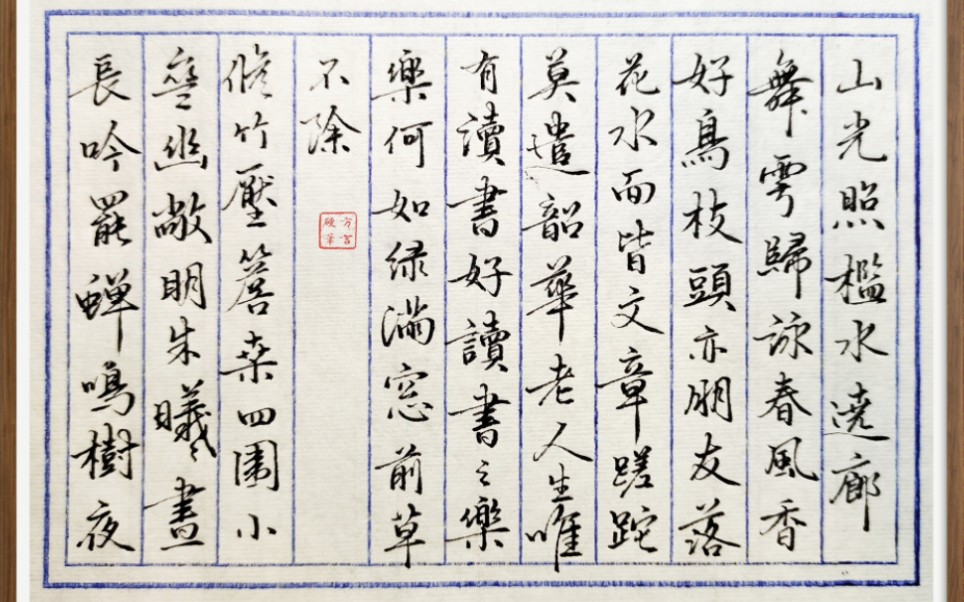 山光照檻水遶廊
舞雩歸詠春風香
好鳥枝頭亦朋友落
花水面皆文章蹉跎
莫遣韶華老人生唯
有讀書好讀書之樂
樂何如绿滿窓前草
不除
修竹壓簷桑四圍小
齋幽敞明朱曦晝
長吟罷蟬鳴樹夜
方
硬筆